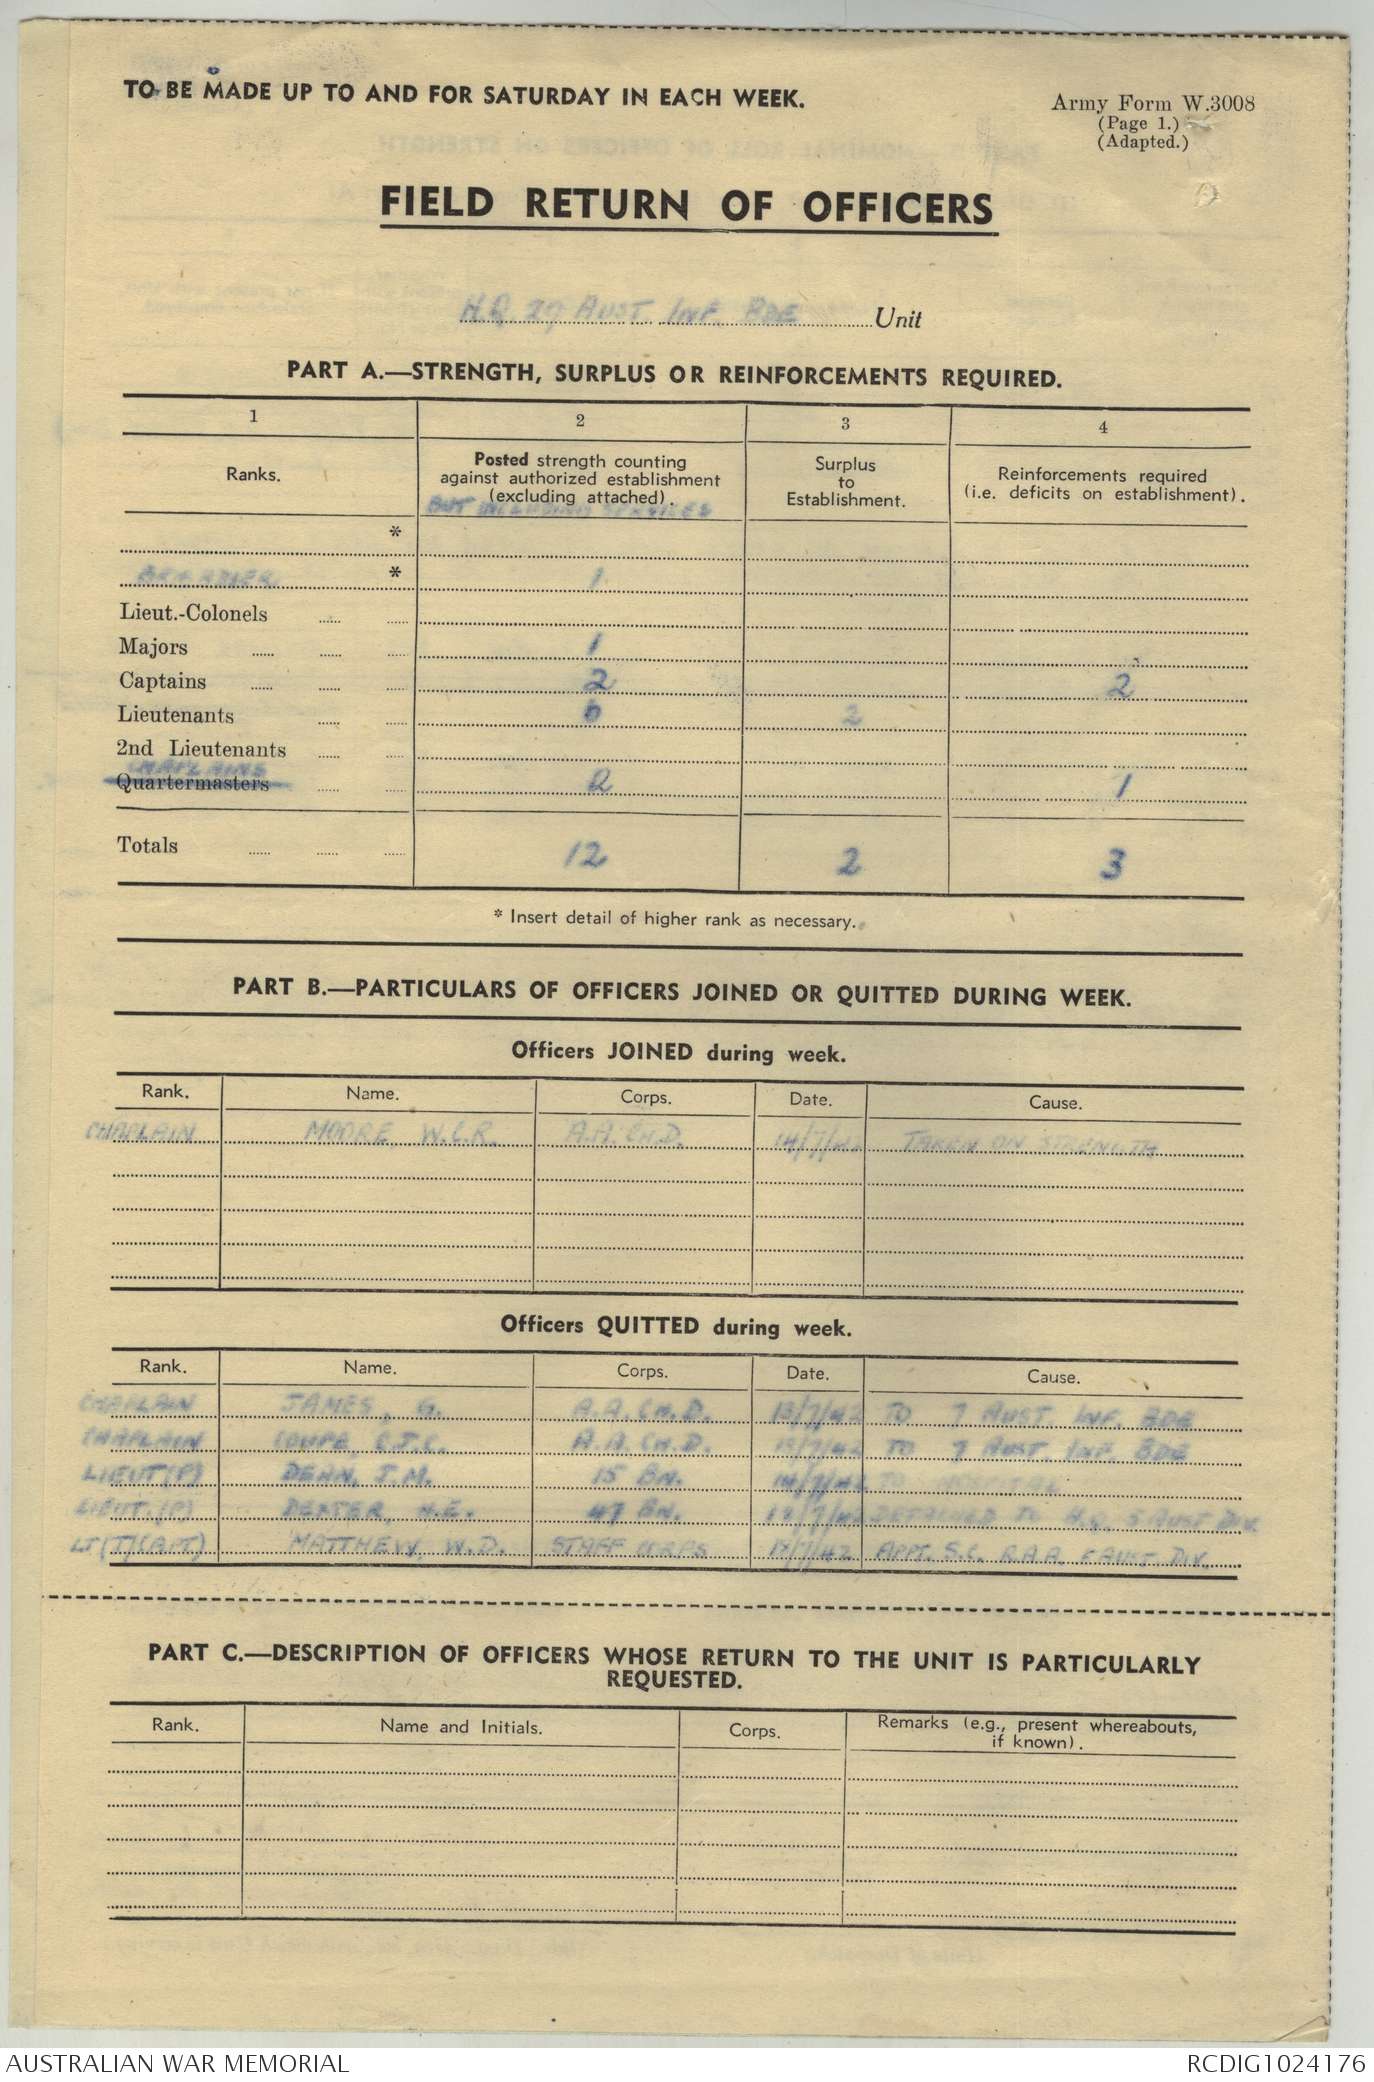 TO BE MADE UP TO AND FOR SATURDAY IN EACH WEEK.
Army Form W.3008
(Page 1.)
(Adapted.)
FIELD RETURN OF OFFICERS
H.Q. 29 AUST. INF. BDE Unit
PART A.—STRENGTH, SURPLUS OR REINFORCEMENTS REQUIRED.
1 2 3 4
Ranks. Posted strength counting against authorized establishment (excluding attached). BUT INCLUDING SERVICES Surplus to Establishment. Reinforcements required (i.e. deficits on establishment).
*
* 1
Lieut.-Colonels
Majors 1
Captains 2 2
Lieutenants 6 2
2nd Lieutenants
CHAPLAINS
Quartermasters 2 1
Totals 12 2 3
* Insert detail of higher rank as necessary.
PART B.—PARTICULARS OF OFFICERS JOINED OR QUITTED DURING WEEK.
Officers JOINED during week.
Rank. Name. Corps. Date. Cause.
CHAPLAIN MOORE W.C.R. A.A. CH.D. 14/7/42 TAKEN ON STRENGTH
Officers QUITTED during week.
Rank. Name. Corps. Date. Cause.
CHAPLAIN JAMES, G. A.A. CH.D. 13/7/42 TO 7 AUST. INF. BDE
CHAPLAIN COUPE, C.J.C. A.A. CH.D. /7/42 TO 7 AUST. INF. BDE
LIEUT(P) DEAN, J.M. 15 BN. 14/7/42 TO HOSPITAL
LIEUT.(P) DEXTER, H.E. 47 BN. /7/42 DETACHED TO H.Q. 5 AUST DIV.
LT(T)(CAPT) MATTHEW, W.D. STAFF CORPS /7/42 APPT. S.C. R.A.A. 5 AUST. DIV.
PART C.—DESCRIPTION OF OFFICERS WHOSE RETURN TO THE UNIT IS PARTICULARLY
REQUESTED.
Rank. Name and Initials. Corps. Remarks (e.g., present whereabouts, if known).
AUSTRALIAN WAR MEMORIAL
RCDIG1024176